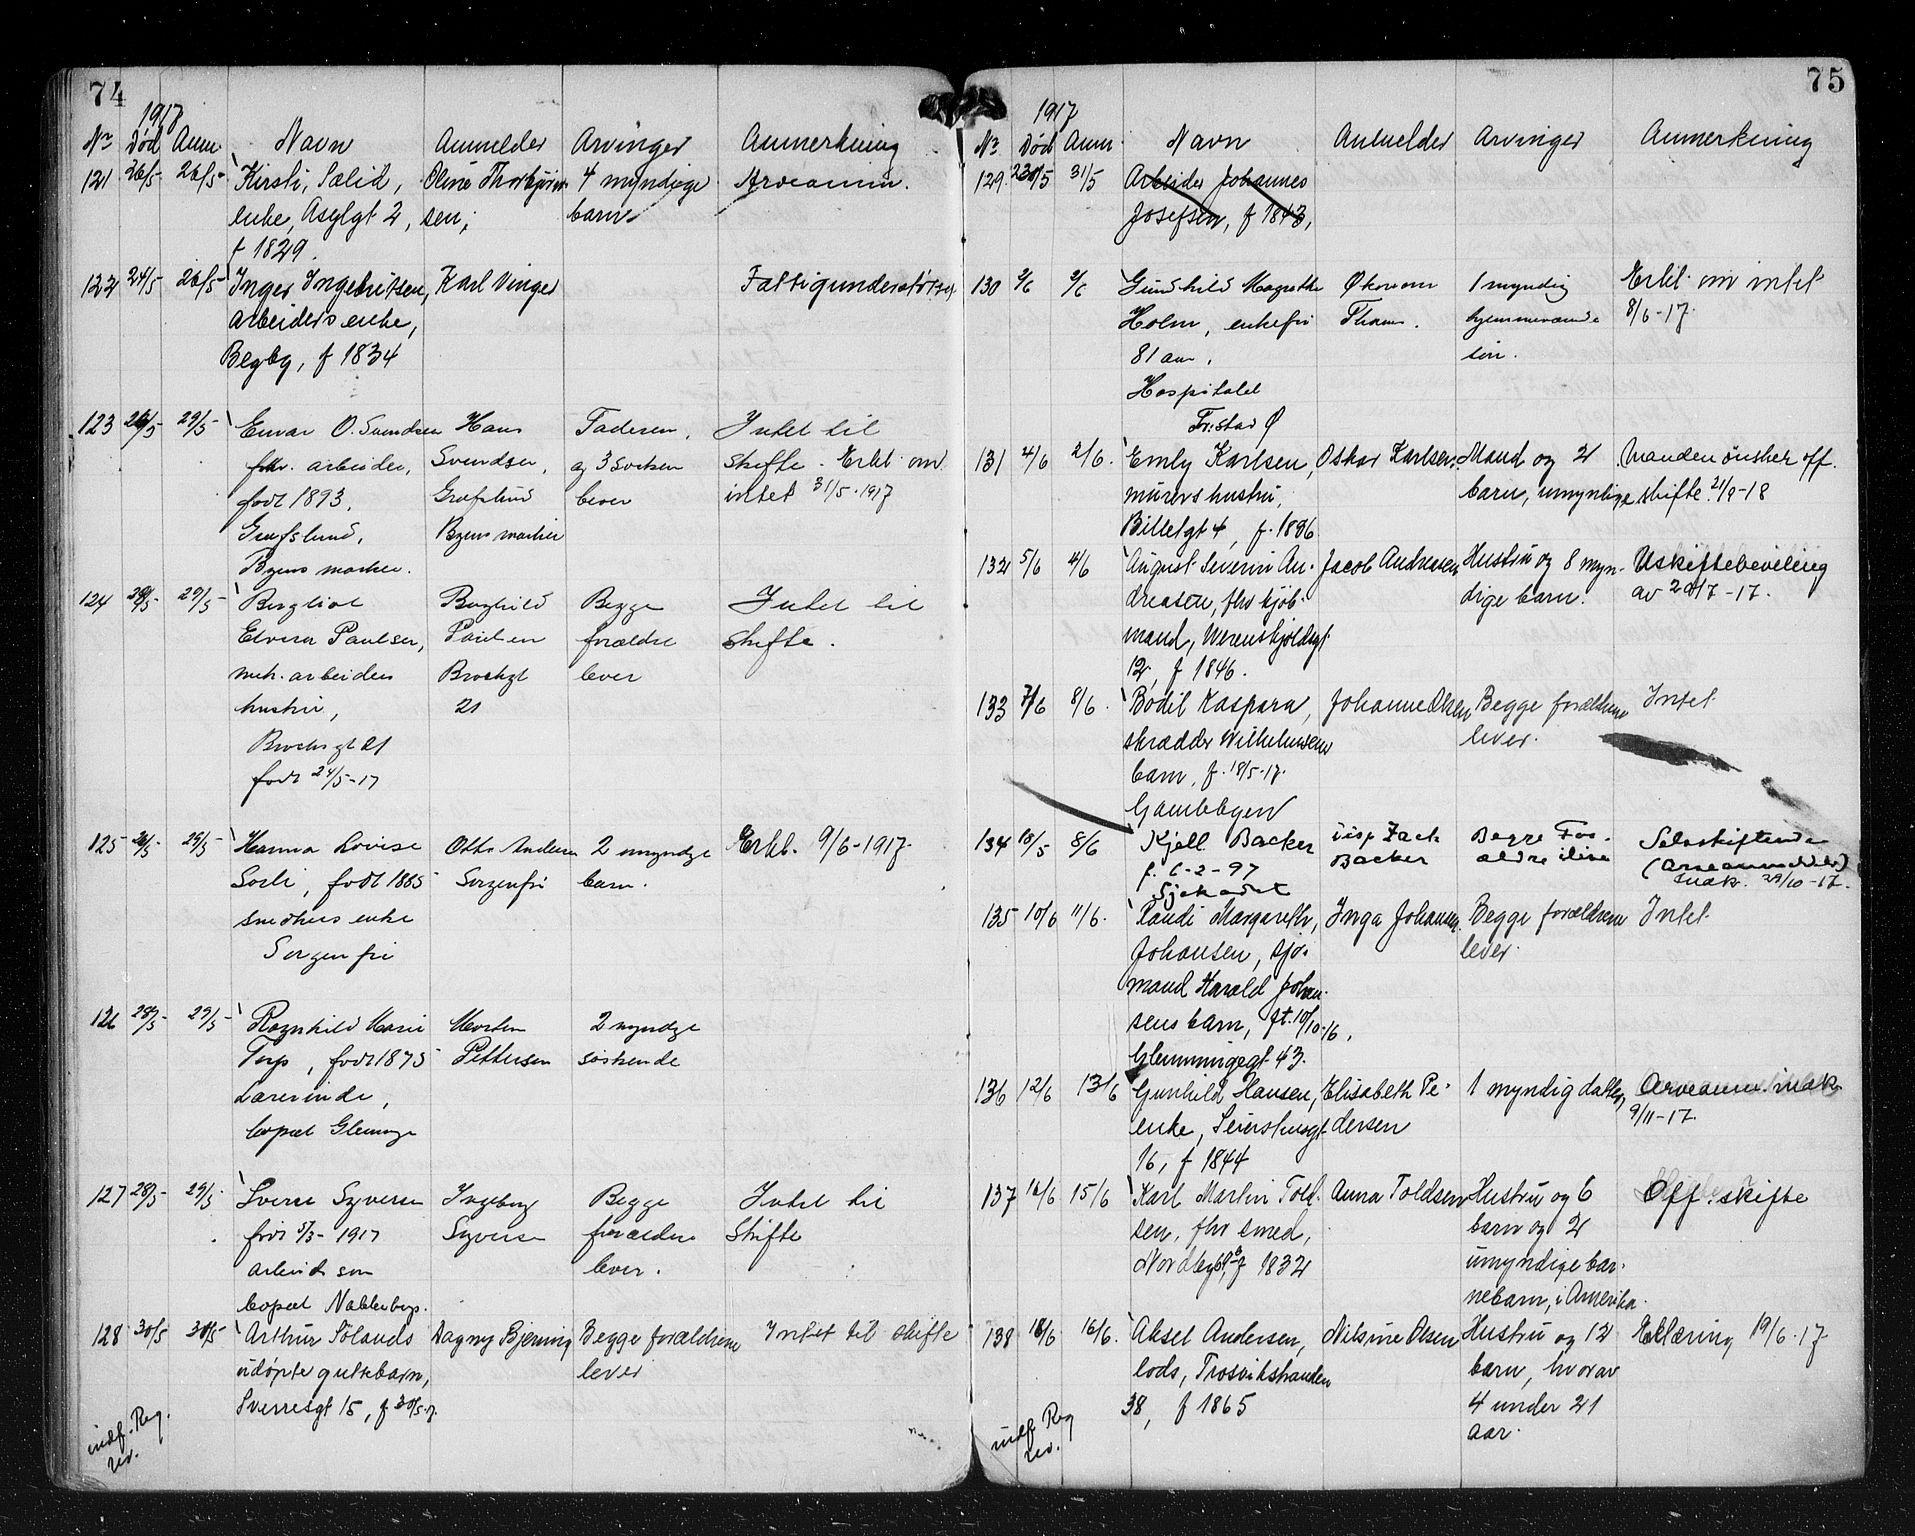 74
1917
Nr Død Anm. Navn Anmelder Arvinger Anmerkning
121 26/5 26/5 Kirsti, Sælid, Oline Thorbjørn- 4 myndige Arveanm.
enke, Asylgt 2, sen; barn
f 1829.
122 24/5 26/5 Inger Ingebritsen, Karl Vinger Fattigunderstøttet
arbeiders enke,
Begby, f 1834
123 26/5 29/5 Einar O. Svendsen Hans Faderen, Intet til
fhv. arbeider, Svendsen, og 3 søsken skifte. Erkl. om
født 1893, lever intet 31/5-1917
Byens marker
Byens marker.
124 29/5 Bergliot Borghild Begge Intet til
Elvira Paulsen, Paulsen forældre skifte.
mek. arbeiders Brochsgt lever
hustru, 21
Brochsgt 21
født 24/5-17
125 26/5 29/5 Hanna Lovise Otto Andersen 2 myndge Erkl. 9/6-1917.
født 1865 Sorgenfri barn.
snedkers enke
Sorgenfri
126 28/5 29/5 Ragnhild Marie Morten 2 myndge
Torp, født 1875 Pettersen søskende
Lærerinde,
bopæl Glemmge
127 28/5 29/5 Sverre Syversen Ingeborg Begge Intet til
født 5/3-1917 Syversen forældre Skifte
arbeid. søn lever.
bopæl Nabbetorp.
128 30/5 30/5 Arthur Følands Dagny Bjerning Begge forældrene Intet til skifte
udøpte guttebarn, lever
Sverresgt 15, f 30/5-17.
indf. Reg.
75
1917
Nr Død Anm. Navn Anmelder Arvinger Anmerkning
129. 31/5 Arbeider Johannes
Josefsen, f 1843,
130 2/6 2/6 Gundhild Magrethe Økonom 1 myndig Erkl. om intet
Holm, enkefru Thom. hjemmeværende 8/6-17.
81 aar, søn.
Hospitalet
Fr.stad Ø
131 2/6 2/6. Emly Karlsen, Oskar Karlsen. Mand og 2 Manden ønsker off.
murers hustru, barn, umyndige skifte. 21/9-18
Billetgt 4, f. 1886
132 5/6 4/6 August Severin An- Jacob Andreasen, Hustru og 8 myn- Uskiftebevilling
dreasen, fhv kjøb- dige barn. av 20/7-17.
mand, Werenskjoldsgt
12, f 1846.
133 7/6 8/6. Bodil Kaspara, Johanne Olsen Begge forældrene Intet
skrædder Wilhelmsens lever.
barn, f. 18/5-17.
Gamlebyen
134 18/5 8/6 Kjell Backer disp Zach Begge For- Selvskiftende
f. 6-2-97 Backer ældre ilive (arveanmelder)
Sjøkadet indk. 29/10-17.
135 10/6 11/6. Randi Margareth, Inga Johansen. Begge forældrene Intet
Johansen, sjø- lever.
mand Harald Johan-
sens barn, ft. 10/10-16,
Glemmingegt 43.
136 12/6 13/6 Gunhild Hansen, Elisabeth Pe- 1 myndig datter, Arveanm. indk
enke, Seierstensgt dersen 9/11-17.
16, f 1844
137 14/6 15/6 Karl Martin Told- Anna Toldsen Hustru og 6 Off. skifte
sen, fhv smed, barn og 2
Nordbygt, f 1832 umyndige bar-
nebarn, i Amerika.
138 16/6 16/6. Aksel Andersen, Nilsine Olsen Hustru og 12 Erklæring 19/6-17.
lods, Trosvikstranden barn, hvorav
38, f 1865 4 under 21
aar.
indf. Reg